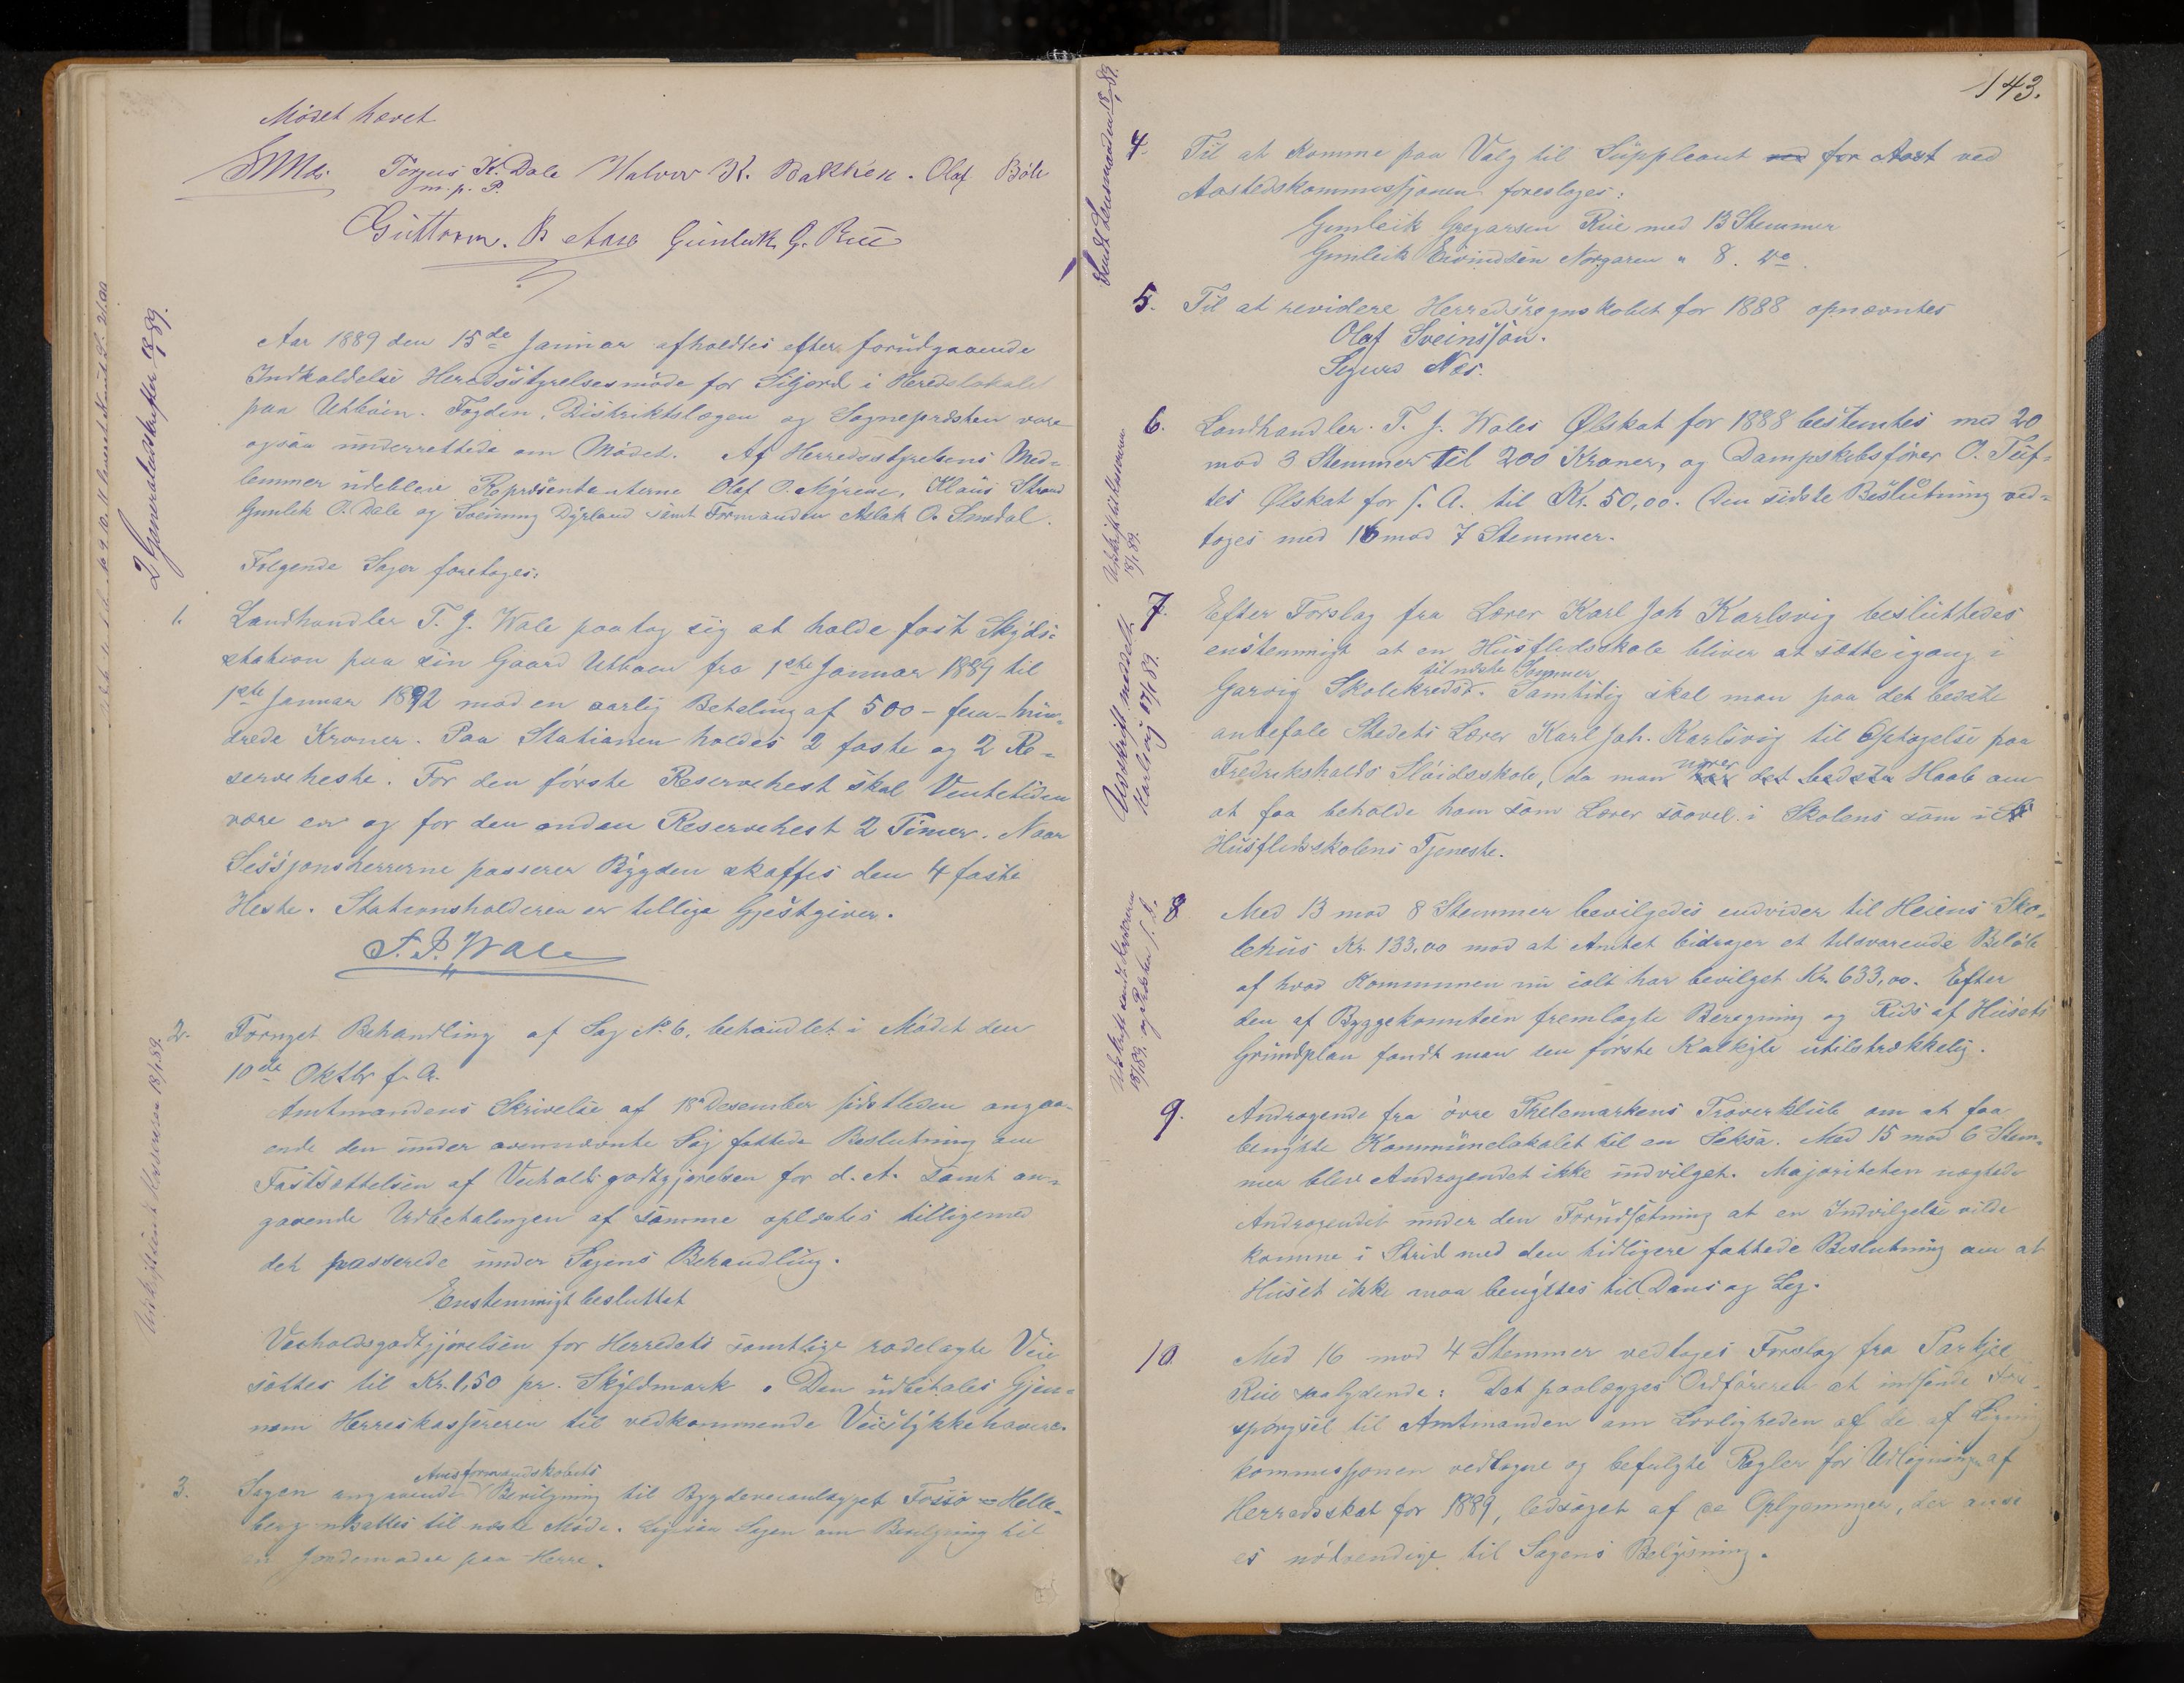 Mødet hævet
Terjus K. Dale Halvor K. Bakken. Olaf Bøle
m. p. P.
Guttorm. B Aase Gunleik G. Rue
Aar 1889 den 15de Januar afholdtes efter forudgaaende
Indkaldelse Heredsstyrelsesmøde for Siljord i Heredslokalet
paa Utbøen. Fogden, Distriktslægen og Sognepresten vare
ogsaa underrettede om Mødet. Af Herredsstyrelsens Med=
lemmer udeblev Repræsentanterne Olaf O. Myrene, Klaus Strand
Gunleik O. Dale og Sveinung Dyrland samt Formanden Aslak O. Smedal.
Følgende Sager foretages:
1. Landhandler T. J. Wale paatog sig at holde fast Skyds=
station paa sin Gaard Utbøen fra 1ste Januar 1889 til
1ste Januar 1892 mod en aarlig Betaling af 500 - fem - hun=
drede Kroner. Paa Stationen holdes 2 faste og 2 Re=
serveheste. For den første Reservehest skal Ventetiden
være en og for den anden Reservehest 2 Timer. Naar
Sessjonsherrerne passerer Bygden skaffes den 4 faste
Heste. Stationsholderen er tillige Gjestgiver.
T. J. Wale
2. Fornyet Behandling af Sag No 6. behandlet i Mødet den
10de Oktbr f. A.
Amtmandens Skrivelse af 18 Desember sidstleden angaa-
ende den under ovennævnte Sag fattede Beslutning om
Fastsættelsen af Veiholdsgodtgjørelsen for d. A. samt an=
gaaende Udbetalingen af samme oplæstes tilligemed
det passerede under Sagens Behandling.
Enstemmigt besluttet
Veiholdsgodtgjørelsen for Herredets samtlige rodelagte Veie
sættes til Kr. 1,50 pr. Skyldmark. Den udbetales Gjen=
nem Herreskassereren til vedkommende Veistykkehavere.
3. Sagen angaaende Amtsformandskabets Bevilgning til Bygdeveianlægget Fossø = Helle=
berg udsættes til næste Møde. Ligesaa Sagen om Bevilgning til
en Jordemoder paa Herre.
2 Generaludskrifter 18/1 89.
Udskrift sendt Kassereren 18/1 89.
143.
4. Til at komme paa Valg til Suppleant ved for Aast ved
Aastedskommissjonen foreslages:
Gunleik Gregarsen Rue med 13 Stemmer
Gunleik Eivindsen Norgaren " 8. do
5. Til at revidere Herredsregnskabet for 1888 opnævntes
Olaf Sveinssøn.
Sigurd Nes.
6. Landhandler T. J. Wales Ølskat for 1888 bestemtes med 20
mod 3 Stemmer til 200 Kroner, og Dampskibsfører O. Tuf=
tes Ølskat for s. A. til Kr. 50,00. Den sidste Beslutning ved=
toges med 16 mod 7 Stemmer.
7. Efter Forslag fra Lærer Karl Joh Karlsvig besluttedes
enstemmigt at en Husflidsskole bliver at sætte igang i
Garvig Skolekreds til næste Sommer. Samtidig skal man paa det bedste
anbefale Stedets Lærer Karl Joh. Karlsvig til Optagelse paa
Fredrikshalds Sløidskole, da man nærer har det bedste Haab om
at faa beholde ham som Lærer saavel i Skolens som i
Husflidsskolens Tjeneste.
8 Med 13 mod 8 Stemmer bevilgedes endvider til Heiens Sko=
lehus Kr. 133,00 mod at Amtet bidrager et tilsvarende Beløb
af hvad Kommunen nu ialt har bevilget Kr. 633,00. Efter
den af Byggekomiteen fremlagte Beregning og Rids af Husets
Grundplan fandt man den første Kalkyle utilstrækkelig.
9. Andragende fra øvre Thelemarkens Traverklub om at faa
benytte Kommunelokalet til en Seksa. Med 15 mod 6 Stem=
mer blev Andragendet ikke indvilget. Majoriteten nægtede
Andragendet under den Forudsætning at en Indvilgelse vilde
komme i Strid med den tidligere fattede Beslutning om at
Huset ikke maa benyttes til Dans og Leg.
10. Med 16 mod 4 Stemmer vedtoges Forslag fra Tarkjel
Rue saalydende: Det paalægges Ordføreren at indsende Fore-
spørgsel til Amtmanden om Lovligheden af de af Lignings
kommissjonen vedtagne og befulgte Regler for Udligningen af
Herredsskat for 1889, ledsaget af de Oplysninger, der anse
es nødvendige til Sagens Belysning.
Sendt Lensmanden 18/1 89.
Udskrift meddelt
Karlsvig 17/1 89.
Udskrift sendt Kassereren
18/1 89. og Præsten s. D.